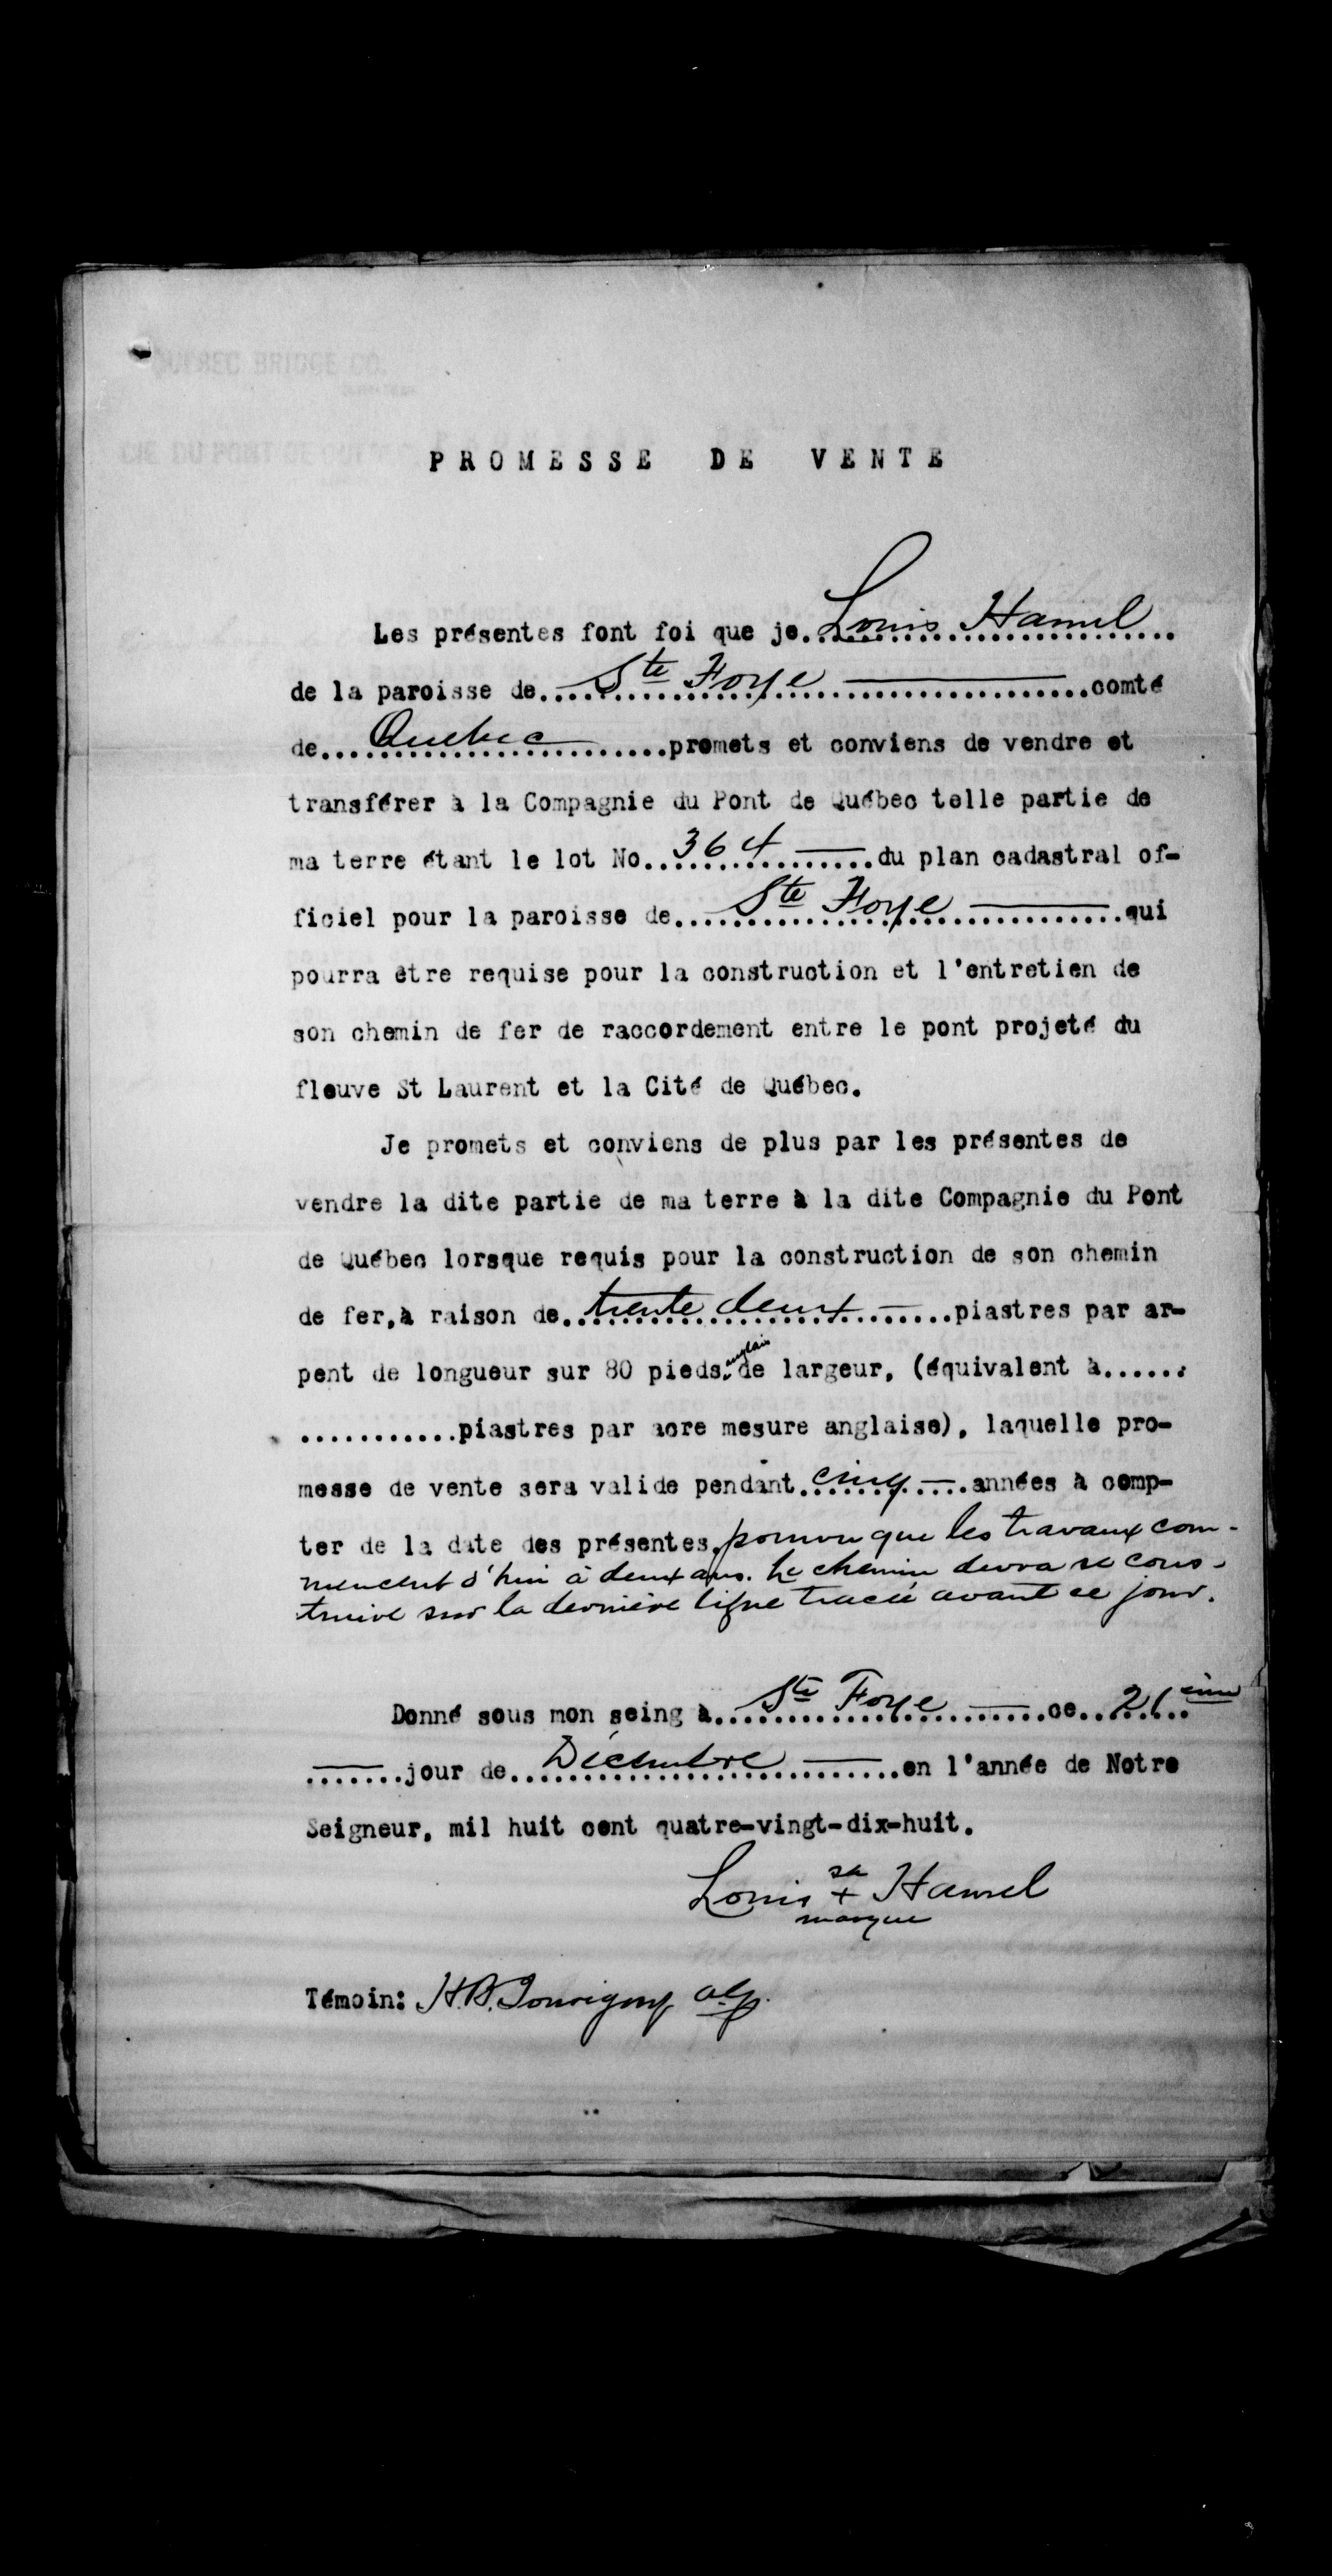 QUEBEC BRIDGE CO.
CIE DU PONT DE QUEBEC
PROMESSE DE VENTE
Les présentes font foi que je..Louis Hamel
de la paroisse de..Ste Foye..comté
de..Quebec..promets et conviens de vendre et
transférer à la Compagnie du Pont de Québec telle partie de
ma terre étant le lot No..364..du plan cadastral of-
ficiel pour la paroisse de..Ste Foye..qui
pourra être requise pour la construction et l'entretien de
son chemin de fer de raccordement entre le pont projeté du
fleuve St Laurent et la Cité de Québec.
Je promets et conviens de plus par les présentes de
vendre la dite partie de ma terre à la dite Compagnie du Pont
de Québec lorsque requis pour la construction de son chemin
de fer, à raison de..trente deux..piastres par ar-
pent de longueur sur 80 pieds anglais de largeur, (équivalent à......
...........piastres par acre mesure anglaise), laquelle pro-
messe de vente sera valide pendant..cinq..années à comp-
ter de la date des présentes, pourvu que les travaux com-
mencent d'hui à deux ans. Le chemin devra se cons-
truire sur la dernière ligne tracée avant ce jour.
Donné sous mon seing à..Ste Foye..ce..21ième
.......jour de..Décembre..en l'année de Notre
Seigneur, mil huit cent quatre-vingt-dix-huit.
Louis sa + Hamel
marque
Témoin: H.B.